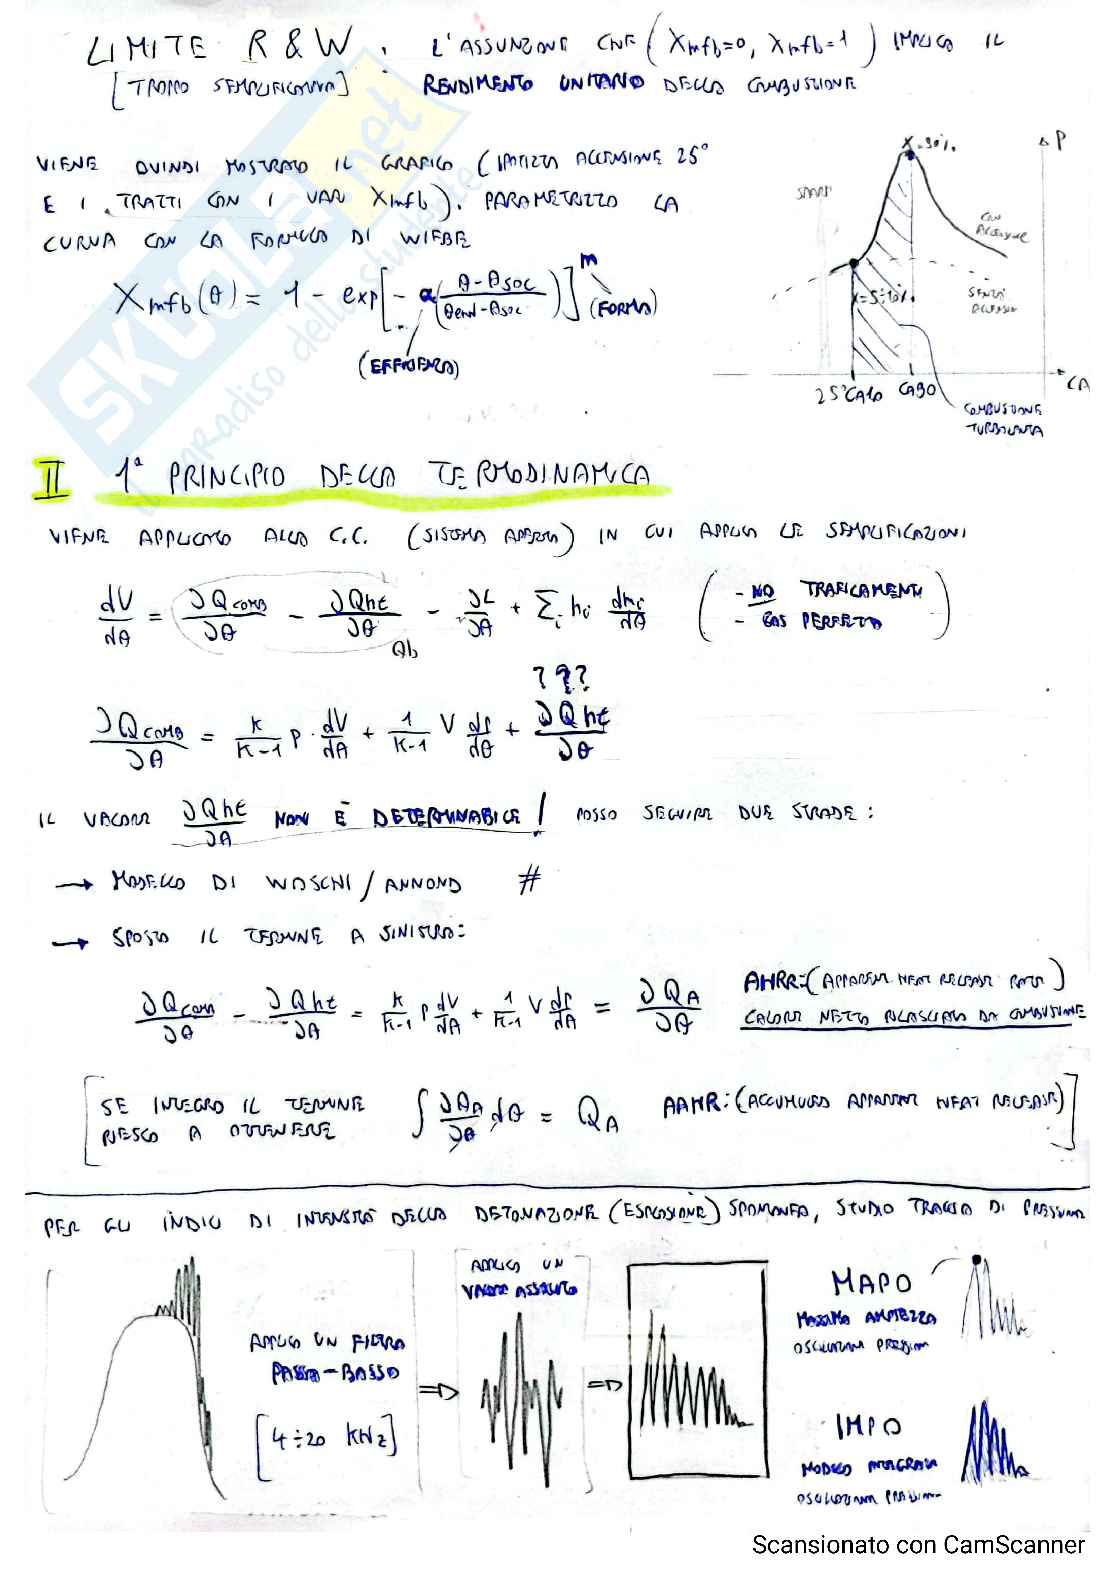 LIMITE R & W . L'ASSUNZIONE CHE ( Xmfb=0, Xmfb=1 ) IMPLICA IL
[TROPPO SEMPLIFICATIVA] RENDIMENTO UNITARIO DELLA COMBUSTIONE
VIENE QUINDI MOSTRATO IL GRAFICO (IPOTIZZO ACCENSIONE 25°
E I TRATTI CON I VARI Xmfb). PARAMETRIZZO LA
CURVA CON LA FORMULA DI WIEBE
Xmfb(θ) = 1 - exp[- a(θ-θsoc / θend-θsoc)]^m (FORMA)
(EFFICIENZA)
P
X=90%
SPARK
CON ACCENSIONE
X=5÷10%
SENZA ACCENSIONE
25° CA10 CA90 CA
COMBUSTIONE
TURBOLENTA
II 1ª PRINCIPIO DELLA TERMODINAMICA
VIENE APPLICATO ALLA C.C. (SISTEMA APERTO) IN CUI APPLICO LE SEMPLIFICAZIONI
dU/dθ = ∂Qcomb/∂θ - ∂Qht/∂θ - ∂L/∂θ + Σi hi dmi/dθ ( - NO TRAFILAMENTI
- GAS PERFETTO )
Qb
???
∂Qcomb/∂θ = K/K-1 P · dV/dθ + 1/K-1 V dP/dθ + ∂Qht/∂θ
IL VALORE ∂Qht/∂θ NON È DETERMINABILE! POSSO SEGUIRE DUE STRADE:
→ MODELLO DI WOSCHI / ANNOND #
→ SPOSTO IL TERMINE A SINISTRA:
∂Qcomb/∂θ - ∂Qht/∂θ = K/K-1 P dV/dθ + 1/K-1 V dP/dθ = ∂QA/∂θ AHRR: (APPARENT HEAT RELEASE RATE)
CALORE NETTO RILASCIATO DA COMBUSTIONE
[SE INTEGRO IL TERMINE ∫ ∂QA/∂θ dθ = QA AAHR: (ACCUMULATED APPARENT HEAT RELEASE)
RIESCO A OTTENERE]
PER GLI INDICI DI INTENSITÀ DELLA DETONAZIONE (ESPLOSIONE) SPONTANEA, STUDIO TRACCIA DI PRESSIONE
APPLICO UN FILTRO
PASSA-BASSO
[4÷20 KHz]
⇒
APPLICO UN
VALORE ASSOLUTO
⇒
MAPO
MASSIMA AMPIEZZA
OSCILLAZIONI PRESSIONI
IMPO
MODULO INTEGRALE
OSCILLAZIONI PRESSIONI
Scansionato con CamScanner
SKUOLA.net
il paradiso dello studente